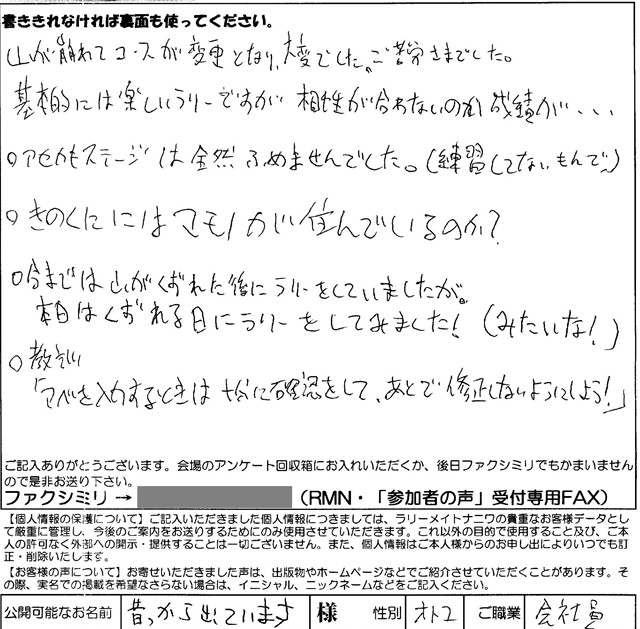 書ききれなければ裏面も使ってください。
山が崩れてコースが変更となり、大変でした。ご苦労さまでした。
基本的には楽しいラリーですが 相性が合わないのか成績が、、、
○アセカキステージは全然ふめませんでした。(練習してないもんで〜)
○きのくににはマモノが住んでいるのか?
○今までは山がくずれた後にラリーをしていましたが。
本日はくずれる日にラリーをしてみました!(みたいな!)
○教訓
「アベを入力するときは十分に確認をして、あとで修正しないようにしよう!」
ご記入ありがとうございます。会場のアンケート回収箱にお入れいただくか、後日ファクシミリでもかまいません
ので是非お送り下さい。
ファクシミリ → (RMN・「参加者の声」受付専用FAX)
【個人情報の保護について】ご記入いただきました個人情報につきましては、ラリーメイトナニワの貴重なお客様データとし
て厳重に管理し、今後のご案内をお送りするためにのみ使用させていただきます。これ以外の目的で使用すること及び、ご本
人の許可なく外部への開示・提供することは一切ございません。また、個人情報はご本人様からのお申し出によりいつでも訂
正・削除いたします。
【お客様の声について】お寄せいただきました声は、出版物やホームページなどでご紹介させていただくことがあります。そ
の際、実名での掲載を希望なさらない場合は、イニシャル、ニックネームなどをご記入ください。
公開可能なお名前 昔っから出ています 様 性別 オトコ ご職業 会社員